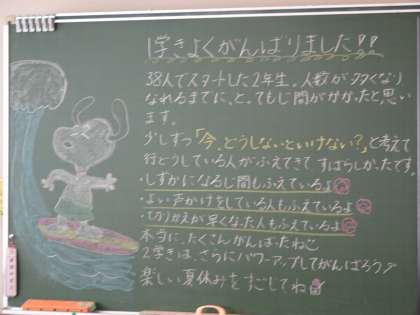 1学きよくがんばりました!!
38人でスタートした2年生。人数が多くなり
なれるまでに、とってもじ間がかかったと思い
ます。
少しずつ「今、どうしないといけない?」と考えて
行どうしている人がふえてきて、すばらしかったです。
・しずかになるじ間もふえているよ
・よい声かけをしている人もふえているよ
・切りかえが早くなった人もふえているよ
本当に、たくさんがんばったねこ
2学きは、さらにパワーアップしてがんばろう♪
楽しい夏休みをすごしてね